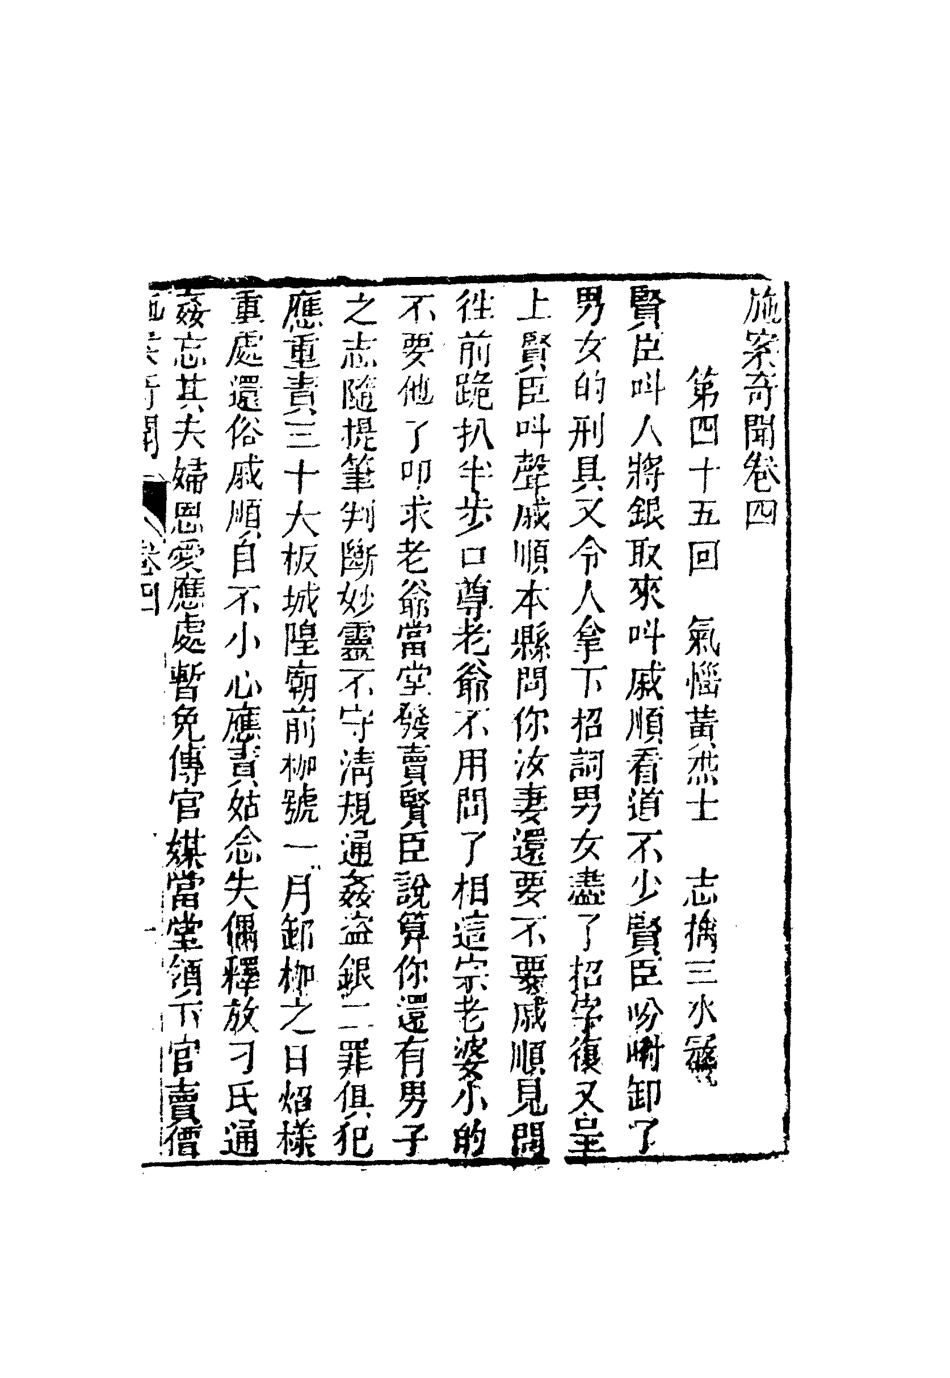 施案奇聞卷四
第四十五回 氣惱黃杰士 志擒三水鬍
賢臣叫人將銀取來叫戚順看道不少賢臣吩咐卸了
男女的刑具又令人拿下招詞男女盡了招字復又呈
上賢臣叫聲戚順本縣問你汝妻還要不要戚順見問
徃前跪扒半步口尊老爺不用問了相這宗老婆小的
不要他了叩求老爺當堂發賣賢臣說算你還有男子
之志隨提筆判斷妙靈不守淸規通姦盜銀二罪俱犯
應重責三十大板城隍廟前枷號一月卸枷之日炤樣
重處還俗戚順自不小心應責姑念失偶釋放刁氏通
姦忘其夫婦恩愛應處暫免傳官媒當堂領下官賣價
施案奇聞 卷四